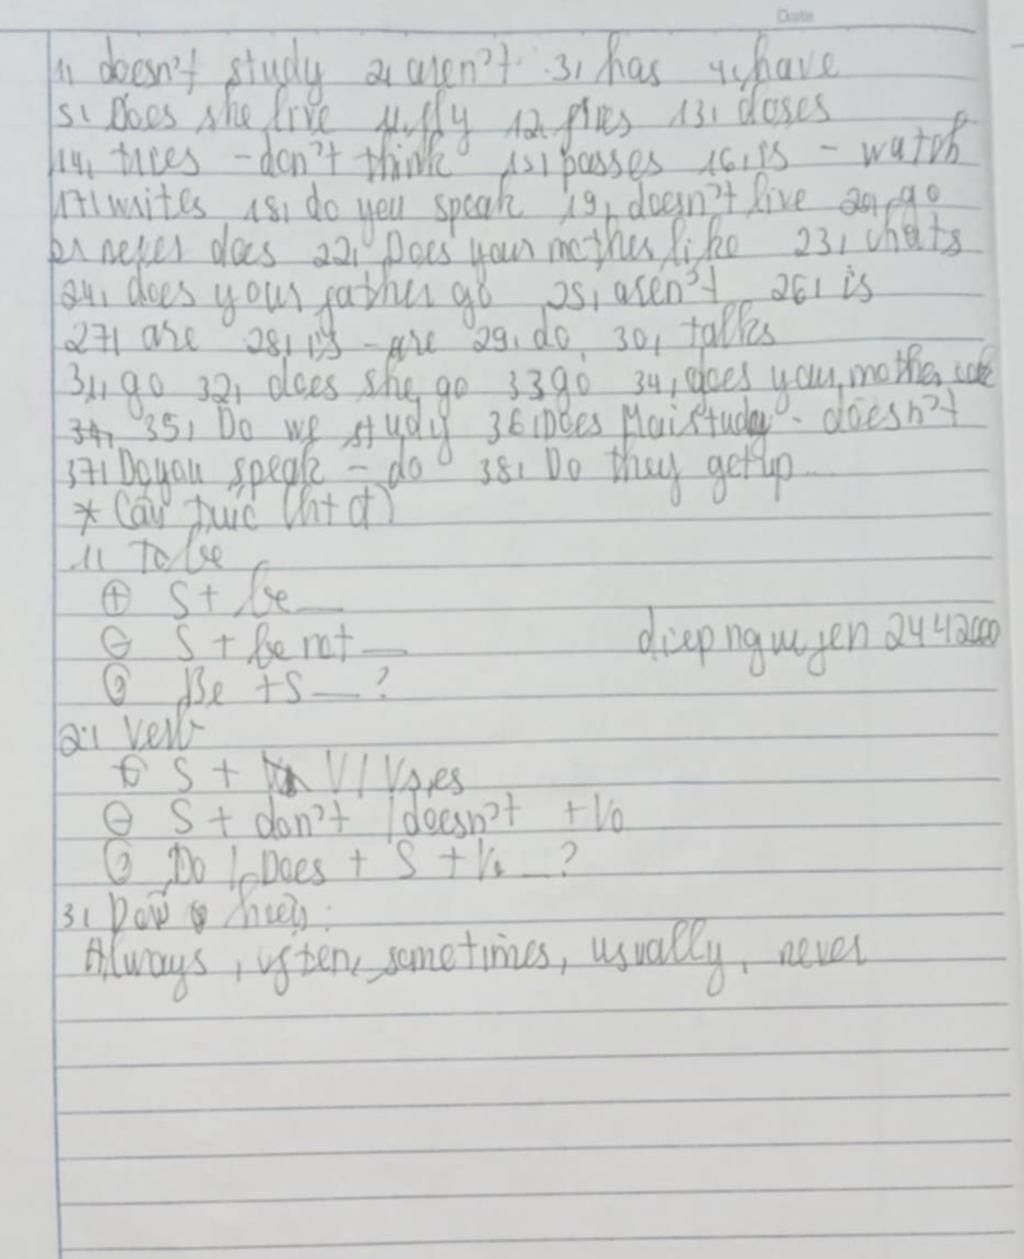 Date
1, doesn't study 2, aren't 3, has 4, have
5, Does she live 11, fly 12, fixes 13, closes
14, tries - don't think 15, passes 16, is - watch
17, writes 18, do you speak 19, doesn't live 20, go
21 never does 22, Does your mother like 23, chats
24, does your father go 25, aren't 26, is
27, are 28, is - are 29, do 30, talks
31, go 32, does she go 33 go 34, does your mother
35, Do we study 36, Does Mai study - doesn't
37, Do you speak - do 38, Do they get up
* Cấu trúc (htđ)
1, To be
+ S + be __
- S + be not __
diepnguyen2442000
? Be + S __ ?
2, Verb
+ S + V / Vs,es
- S + don't / doesn't + Vo
? Do / Does + S + Vo __ ?
3, Dấu hiệu:
Always, often, sometimes, usually, never